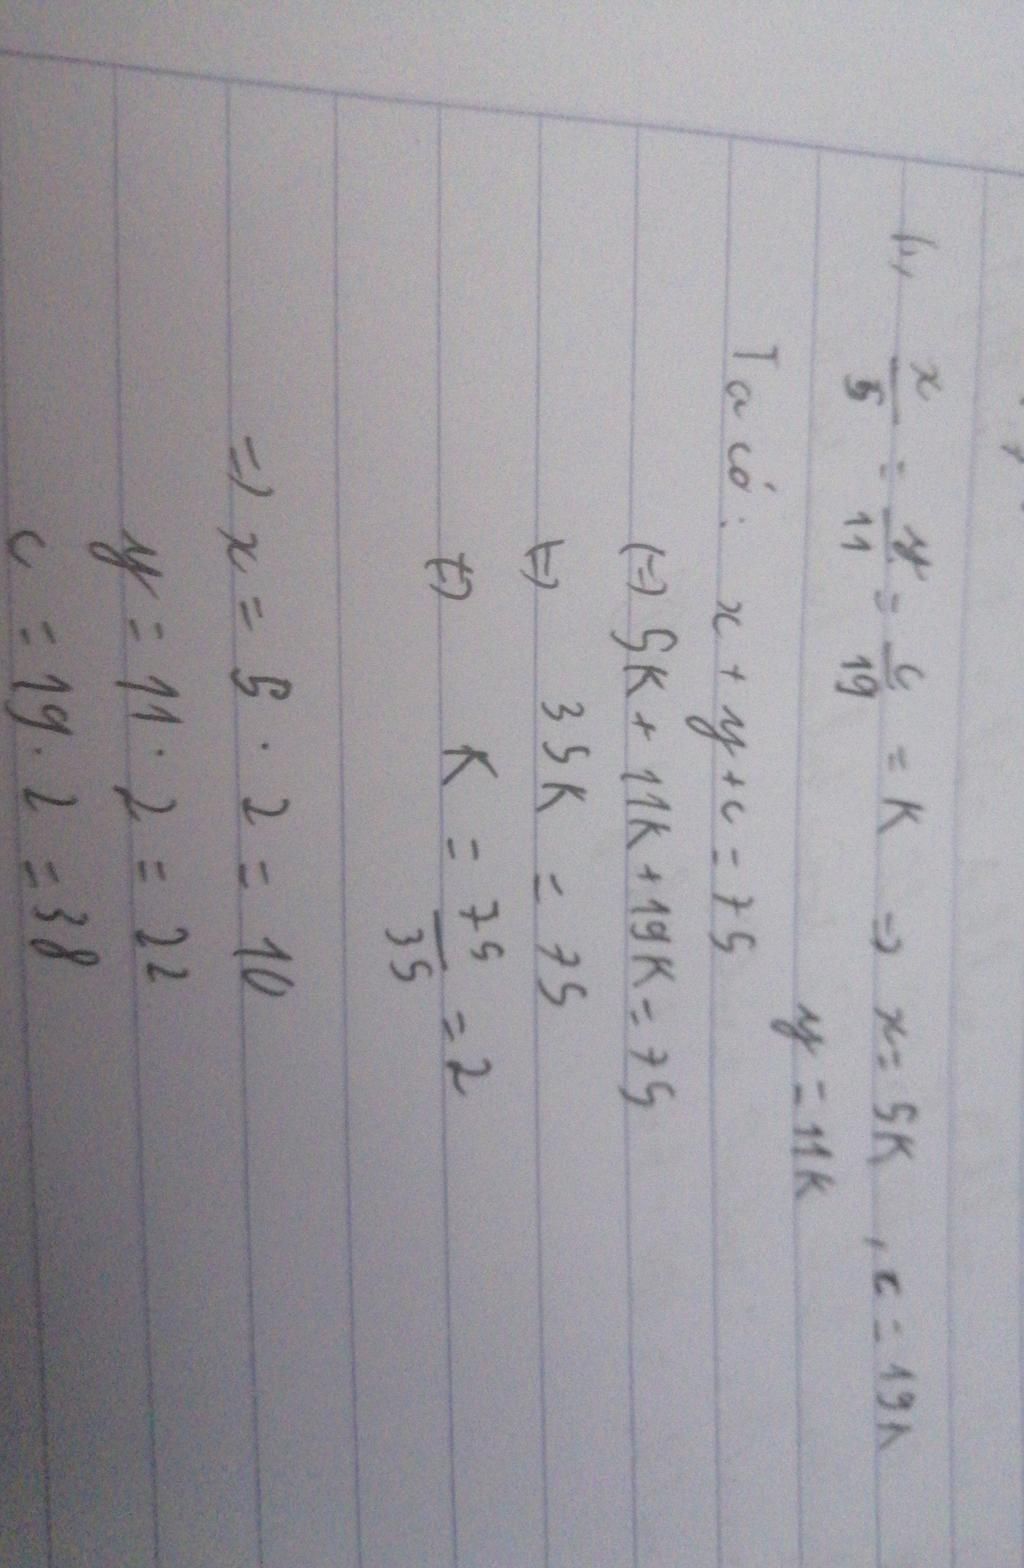 b, x/5 = y/11 = c/19 = K => x = 5K , c = 19K
y = 11K
Ta có: x + y + c = 75
(=) 5K + 11K + 19K = 75
(=) 35K = 75
(=) K = 75/35 = 2
=) x = 5 . 2 = 10
y = 11 . 2 = 22
c = 19 . 2 = 38